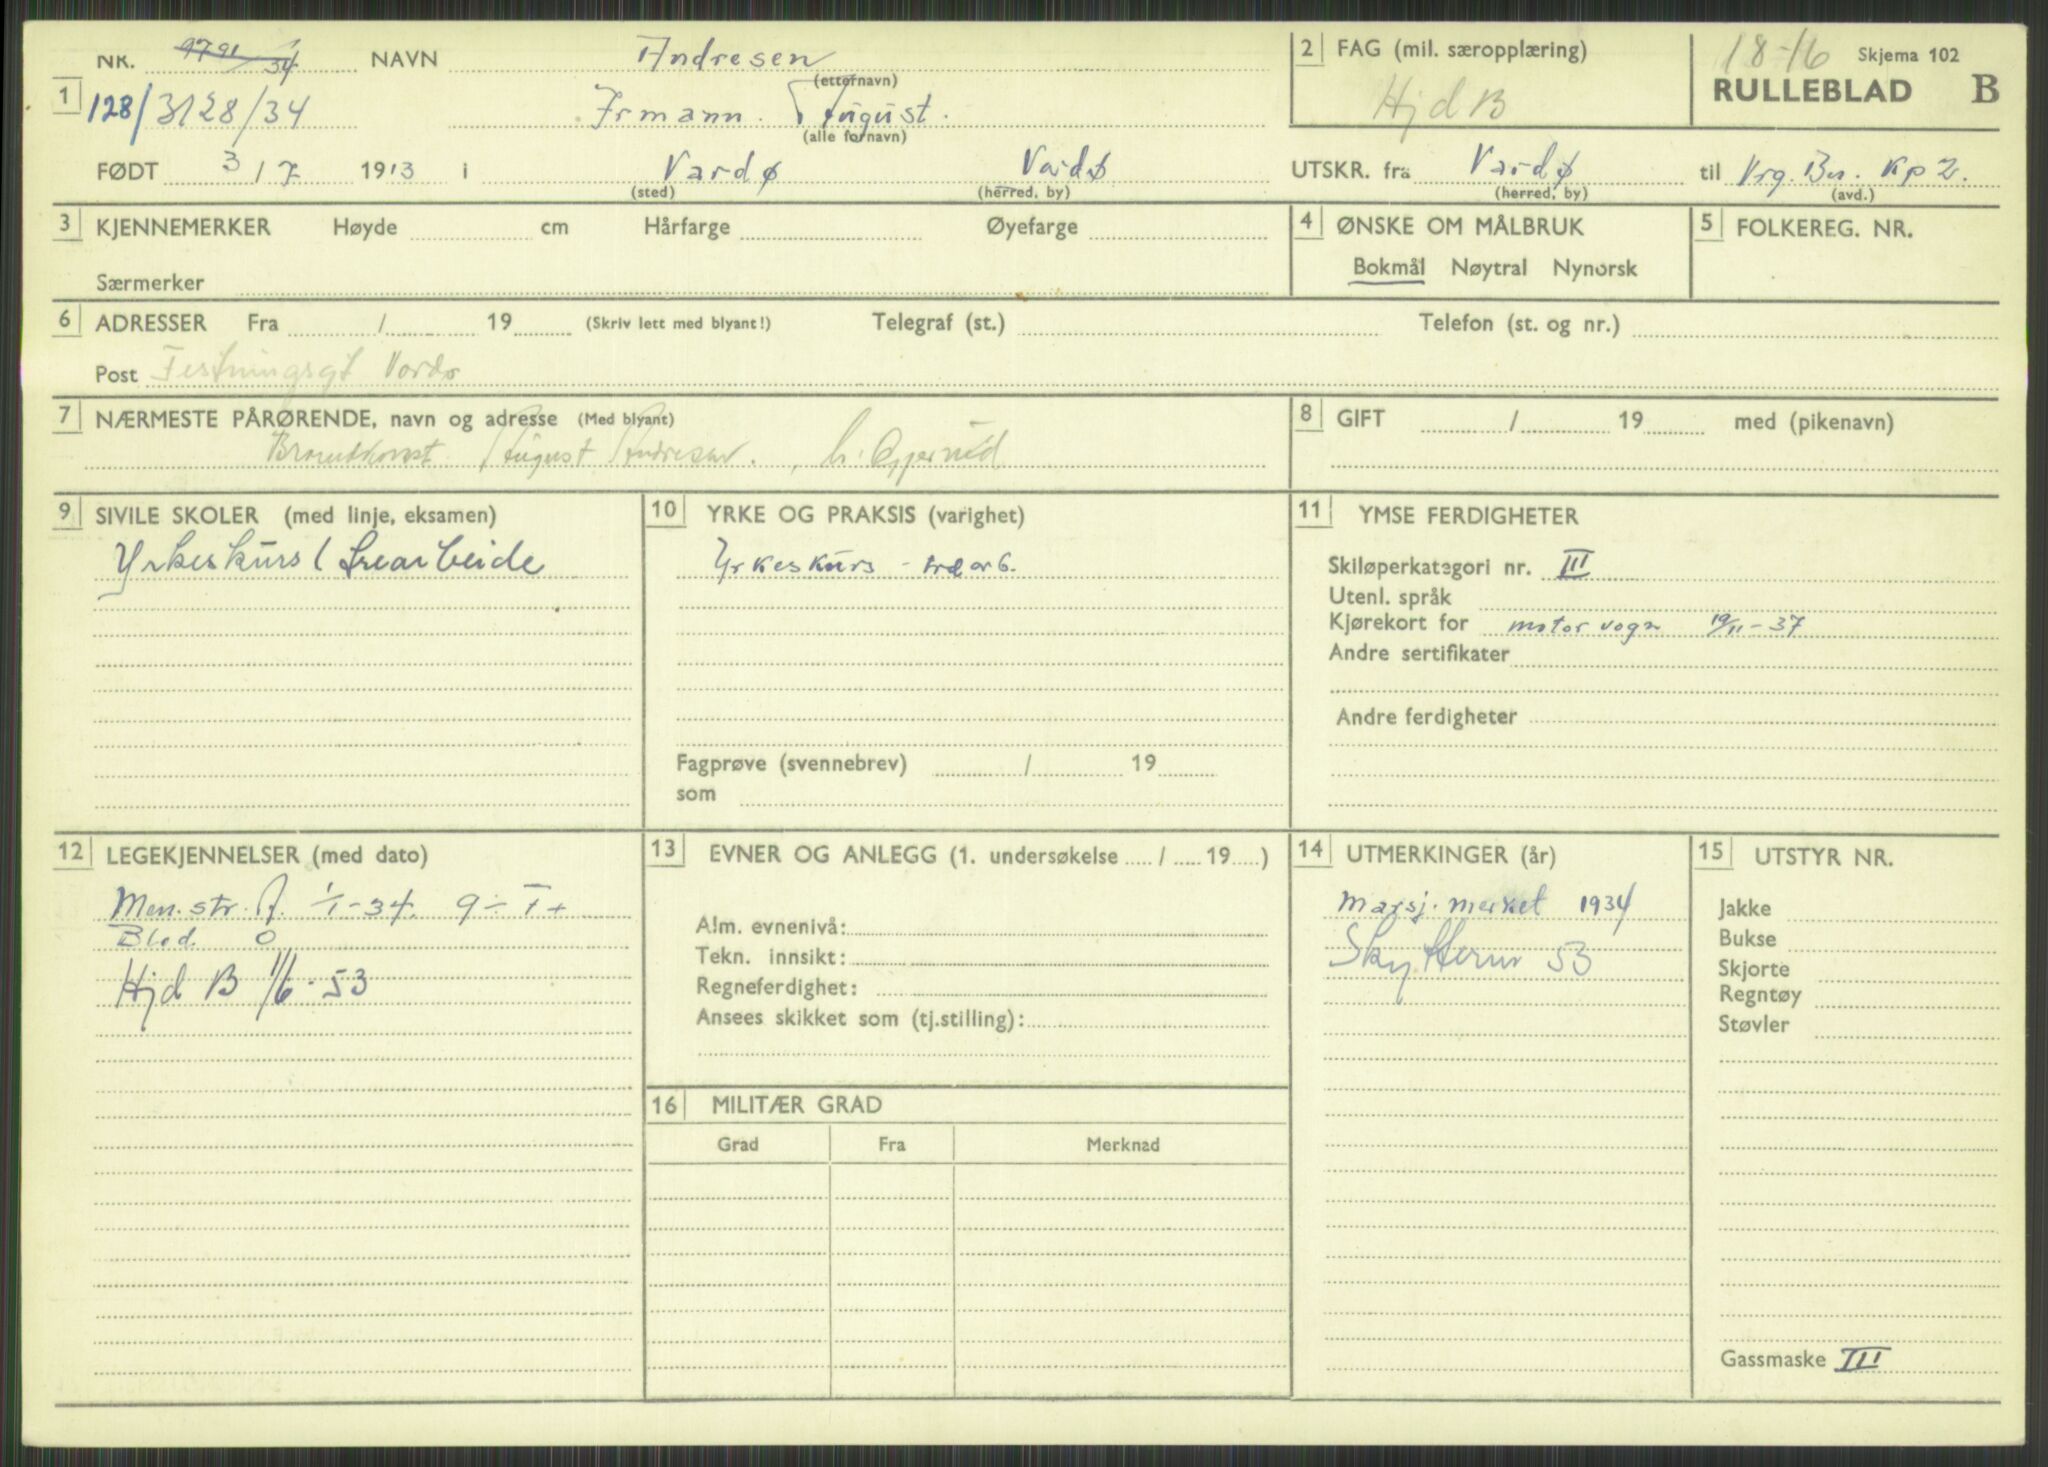 NR. 9791/34 NAVN Andresen (etternavn)
1 128/3128/34 Irmann August. (alle fornavn)
FØDT 3 / 7 1913 i Vardø (sted) Vardø (herred, by)
2 FAG (mil. særopplæring)
Hjd B
18-16 Skjema 102
RULLEBLAD B
UTSKR. fra Vardø (herred, by) til Vrg. Bn. Kp 2. (avd.)
3 KJENNEMERKER Høyde cm Hårfarge Øyefarge
Særmerker
4 ØNSKE OM MÅLBRUK
Bokmål Nøytral Nynorsk
5 FOLKEREG. NR.
6 ADRESSER Fra / 19 (Skriv lett med blyant!) Telegraf (st.) Telefon (st. og nr.)
Post Festningsgt Vardø
7 NÆRMESTE PÅRØRENDE, navn og adresse (Med blyant)
August Andresen.
8 GIFT / 19 med (pikenavn)
9 SIVILE SKOLER (med linje, eksamen)
Yrkeskurs i trearbeide
10 YRKE OG PRAKSIS (varighet)
Yrkeskurs - trearb.
Fagprøve (svennebrev) / 19
som
11 YMSE FERDIGHETER
Skiløperkategori nr. III
Utenl. språk
Kjørekort for motorvogn 19/11-37
Andre sertifikater
Andre ferdigheter
12 LEGEKJENNELSER (med dato)
Men. str. A. 1/1-34. 9 ÷ T +
Blod. O
Hjd B 1/6-53
13 EVNER OG ANLEGG (1. undersøkelse ..... / ..... 19.....)
Alm. evnenivå:
Tekn. innsikt:
Regneferdighet:
Ansees skikket som (tj.stilling):
14 UTMERKINGER (år)
Marsj. merket 1934
53
15 UTSTYR NR.
Jakke
Bukse
Skjorte
Regntøy
Støvler
Gassmaske III
16 MILITÆR GRAD
Grad Fra Merknad